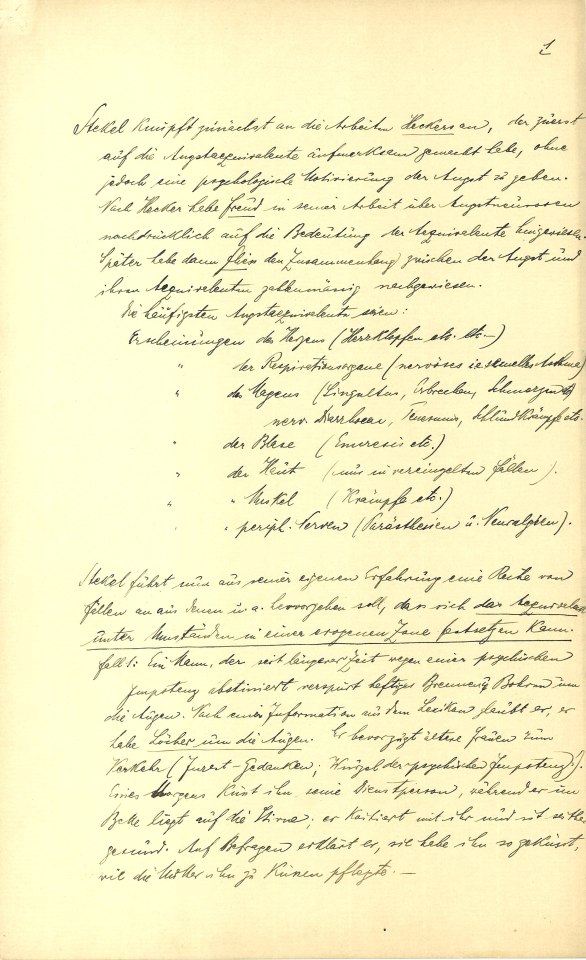 1
Stekel knüpft zunächst an die Arbeiten Heckers an, der zuerst
auf die Angstaequivalente aufmerksam gemacht habe, ohne
jedoch eine psychologische Motivierung der Angst zu geben.
Nach Hecker habe Freud in seiner Arbeit über Angstneurosen
nachdrücklich auf die Bedeutung der Aequivalente hingewiesen.
Später habe dann Fliess den Zusammenhang zwischen der Angst und
ihren Aequivalenten zahlenmässig nachgewiesen.
Die häufigsten Angstaequivalente seien:
Erscheinungen des Herzens (Herzklopfen etc. etc.–)
" der Respirationsorgane (nervöses Asthma)
" des Magens (Singultus, Erbrechen, Schmerzen
nerv. Diarrhoeen, Tenesmus, Schlundkrämpfe etc.
" der Blase (Enuresis etc.)
" der Haut (nur in vereinzelten Fällen).
" " Muskel (Krämpfe etc.)
" " periph. Nerven (Parästhesien u. Neuralgien).
Stekel führt nun aus seiner eigenen Erfahrung eine Reihe von
Fällen an aus denen u. a. hervorgehen soll, dass sich das Aequivalent
unter Umständen in einer erogenen Zone festsetzen kann.
Fall 1: Ein Mann, der seit längerer Zeit wegen einer psychischen
Impotenz abstiniert verspürt heftiges Brennen u. Bohren um
die Augen. Nach einer Information aus dem Lexikon glaubt er, er
habe Löcher um die Augen. Er bevorzugt ältere Frauen zum
Verkehr (Inzest-Gedanken; Wurzel der psychischen Impotenz!).
Eines Morgens küsst ihn seine Dienstperson, während er im
Bette liegt auf die Stirne; er koitiert mit ihr und ist seither
gesund. Auf Befragen erklärt er, sie habe ihn so geküsst,
wie die Mutter ihn zu küssen pflegte. —